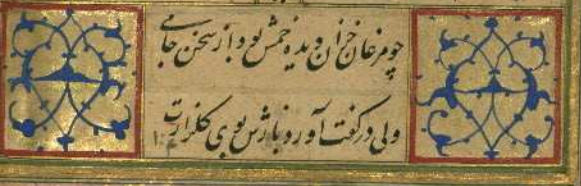 چو مرغان خزان دیده خمش بود از سخن جامی
ولی در گفت آورد بازش بوی گلزارت